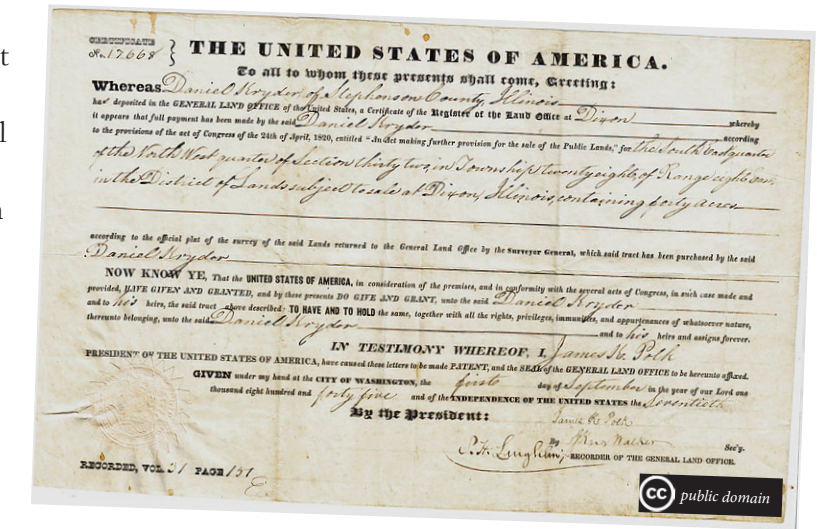 CERTIFICATE
No. 17668
THE UNITED STATES OF AMERICA.
To all to whom these presents shall come, Greeting:
Whereas Daniel Kryder, of Stephenson County, Illinois
has deposited in the GENERAL LAND OFFICE of the United States, a Certificate of the Register of the Land Office at Dixon whereby
it appears that full payment has been made by the said Daniel Kryder according
to the provisions of the act of Congress of the 24th of April, 1820, entitled "An act making further provision for the sale of the Public Lands," for the South East quarter
of the North West quarter of Section thirty two, in Township twenty eight, of Range eight East,
in the District of Lands subject to sale at Dixon, Illinois, containing forty acres
according to the official plat of the survey of the said Lands returned to the General Land Office by the Surveyor General, which said tract has been purchased by the said
Daniel Kryder
NOW KNOW YE, That the UNITED STATES OF AMERICA, in consideration of the premises, and in conformity with the several acts of Congress, in such case made and
provided, HAVE GIVEN AND GRANTED, and by these presents DO GIVE AND GRANT, unto the said Daniel Kryder
and to his heirs, the said tract above described: TO HAVE AND TO HOLD the same, together with all the rights, privileges, immunities, and appurtenances of whatsoever nature,
thereunto belonging, unto the said Daniel Kryder and to his heirs and assigns forever.
IN TESTIMONY WHEREOF, I, James K. Polk
PRESIDENT OF THE UNITED STATES OF AMERICA, have caused these letters to be made PATENT, and the SEAL of the GENERAL LAND OFFICE to be hereunto affixed.
GIVEN under my hand at the CITY OF WASHINGTON, the first day of September in the year of our Lord one
thousand eight hundred and forty five and of the INDEPENDENCE OF THE UNITED STATES the Seventieth
By the President: James K. Polk
By Walker Sec'y.
RECORDER OF THE GENERAL LAND OFFICE.
RECORDED, VOL. 31 PAGE 157
cc public domain